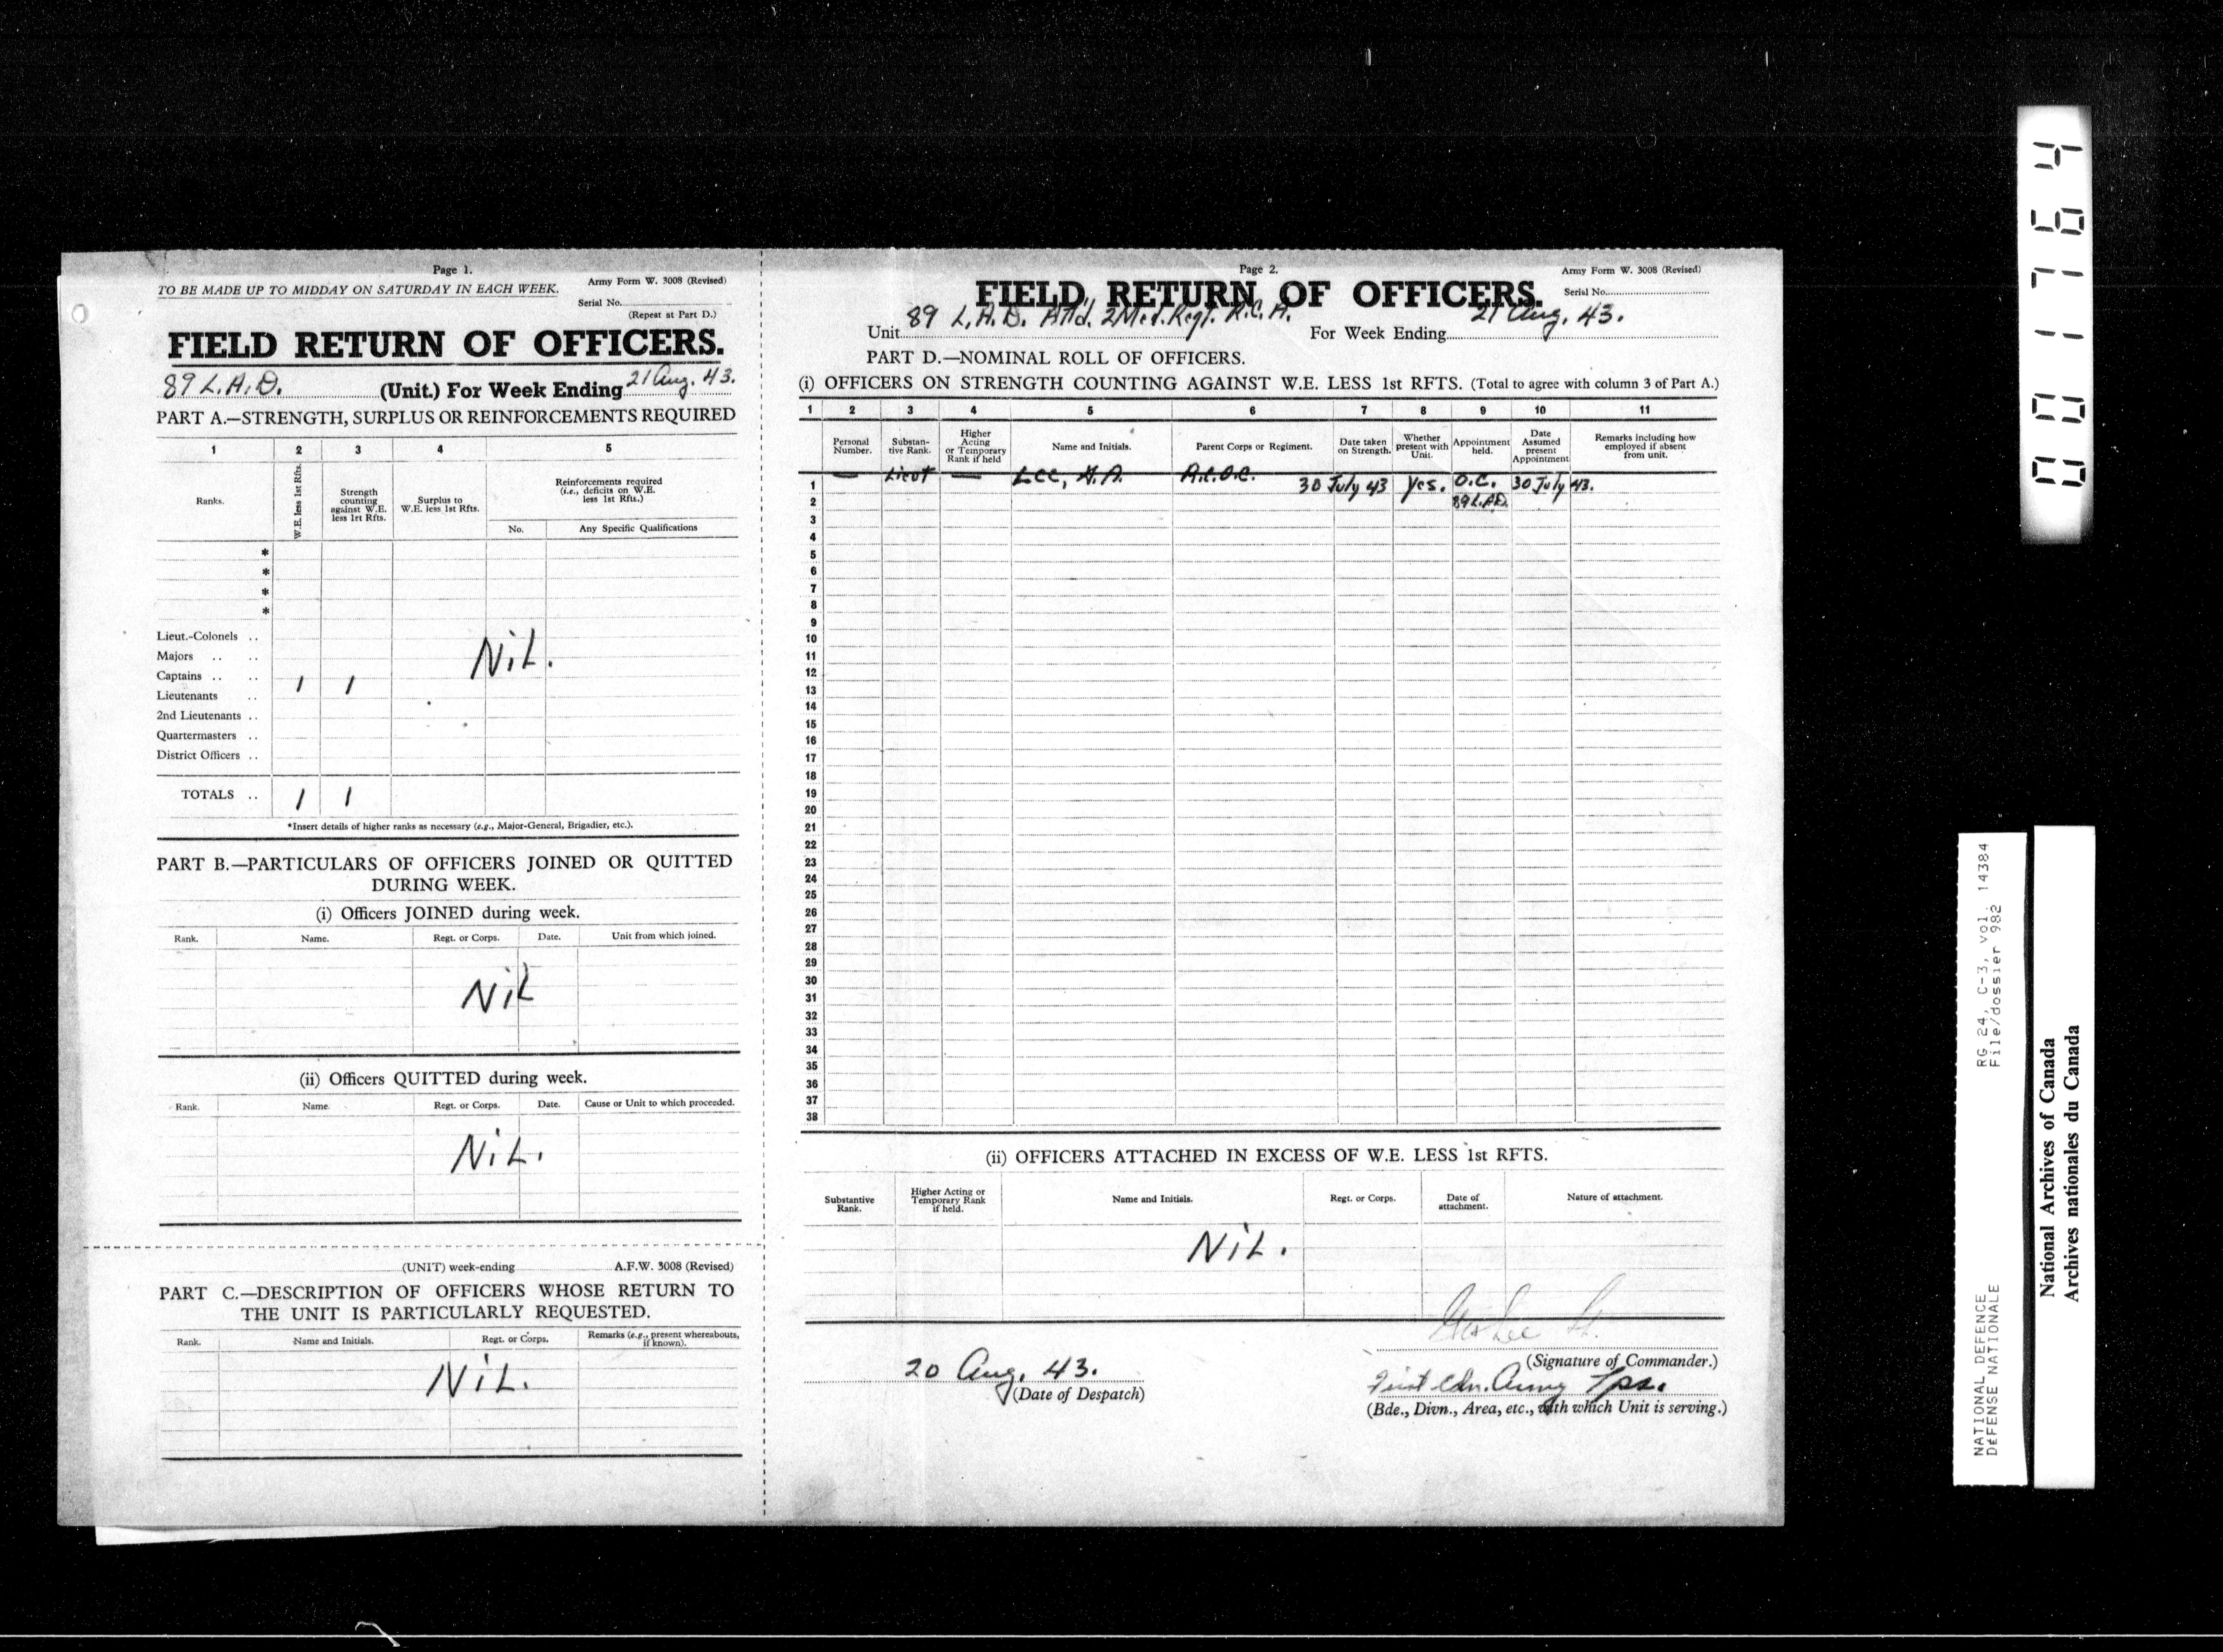 Page 1.
TO BE MADE UP TO MIDDAY ON SATURDAY IN EACH WEEK.
Army Form W. 3008 (Revised)
Serial No.
(Repeat at Part D.)
FIELD RETURN OF OFFICERS.
89 L.A.D. (Unit.) For Week Ending 21 Aug. 43.
PART A.—STRENGTH, SURPLUS OR REINFORCEMENTS REQUIRED
1 2 3 4 5
Ranks.
W.E. less 1st Rfts.
Strength counting against W.E. less 1rt Rfts.
Surplus to W.E. less 1st Rfts.
Reinforcements required (i.e., deficits on W.E. less 1st Rfts.)
No. Any Specific Qualifications
*
*
*
*
Lieut.-Colonels ..
Nil.
Majors .. ..
Captains .. .. 1 1
Lieutenants ..
2nd Lieutenants ..
Quartermasters ..
District Officers ..
TOTALS .. 1 1
*Insert details of higher ranks as necessary (e.g., Major-General, Brigadier, etc.).
PART B.—PARTICULARS OF OFFICERS JOINED OR QUITTED
DURING WEEK.
(i) Officers JOINED during week.
Rank. Name. Regt. or Corps. Date. Unit from which joined.
Nil
(ii) Officers QUITTED during week.
Rank. Name. Regt. or Corps. Date. Cause or Unit to which proceeded.
Nil.
(UNIT) week-ending A.F.W. 3008 (Revised)
PART C.—DESCRIPTION OF OFFICERS WHOSE RETURN TO
THE UNIT IS PARTICULARLY REQUESTED.
Rank. Name and Initials. Regt. or Corps. Remarks (e.g., present whereabouts, if known).
Nil.
Page 2.
Army Form W. 3008 (Revised)
FIELD RETURN OF OFFICERS.
Serial No.
Unit 89 L.A.D. Attd. 2 Med. Regt. R.C.A. For Week Ending 21 Aug. 43.
PART D.—NOMINAL ROLL OF OFFICERS.
(i) OFFICERS ON STRENGTH COUNTING AGAINST W.E. LESS 1st RFTS. (Total to agree with column 3 of Part A.)
1 2 3 4 5 6 7 8 9 10 11
Personal Number.
Substan-tive Rank.
Higher Acting or Temporary Rank if held
Name and Initials.
Parent Corps or Regiment.
Date taken on Strength.
Whether present with Unit.
Appointment held.
Date Assumed present Appointment
Remarks including how employed if absent from unit.
1 — Lieut — Lee, R.C.O.C. 30 July 43 Yes. O.C. 30 July 43.
2 89 L.A.D.
3
4
5
6
7
8
9
10
11
12
13
14
15
16
17
18
19
20
21
22
23
24
25
26
27
28
29
30
31
32
33
34
35
36
37
38
(ii) OFFICERS ATTACHED IN EXCESS OF W.E. LESS 1st RFTS.
Substantive Rank.
Higher Acting or Temporary Rank if held.
Name and Initials.
Regt. or Corps.
Date of attachment.
Nature of attachment.
Nil.
Lee Lt.
(Signature of Commander.)
20 Aug. 43.
(Date of Despatch)
First Cdn. Army Tps.
(Bde., Divn., Area, etc., with which Unit is serving.)
001764
RG 24, C-3, vol. 14384
File/dossier 982
NATIONAL DEFENCE
DEFENSE NATIONALE
National Archives of Canada
Archives nationales du Canada